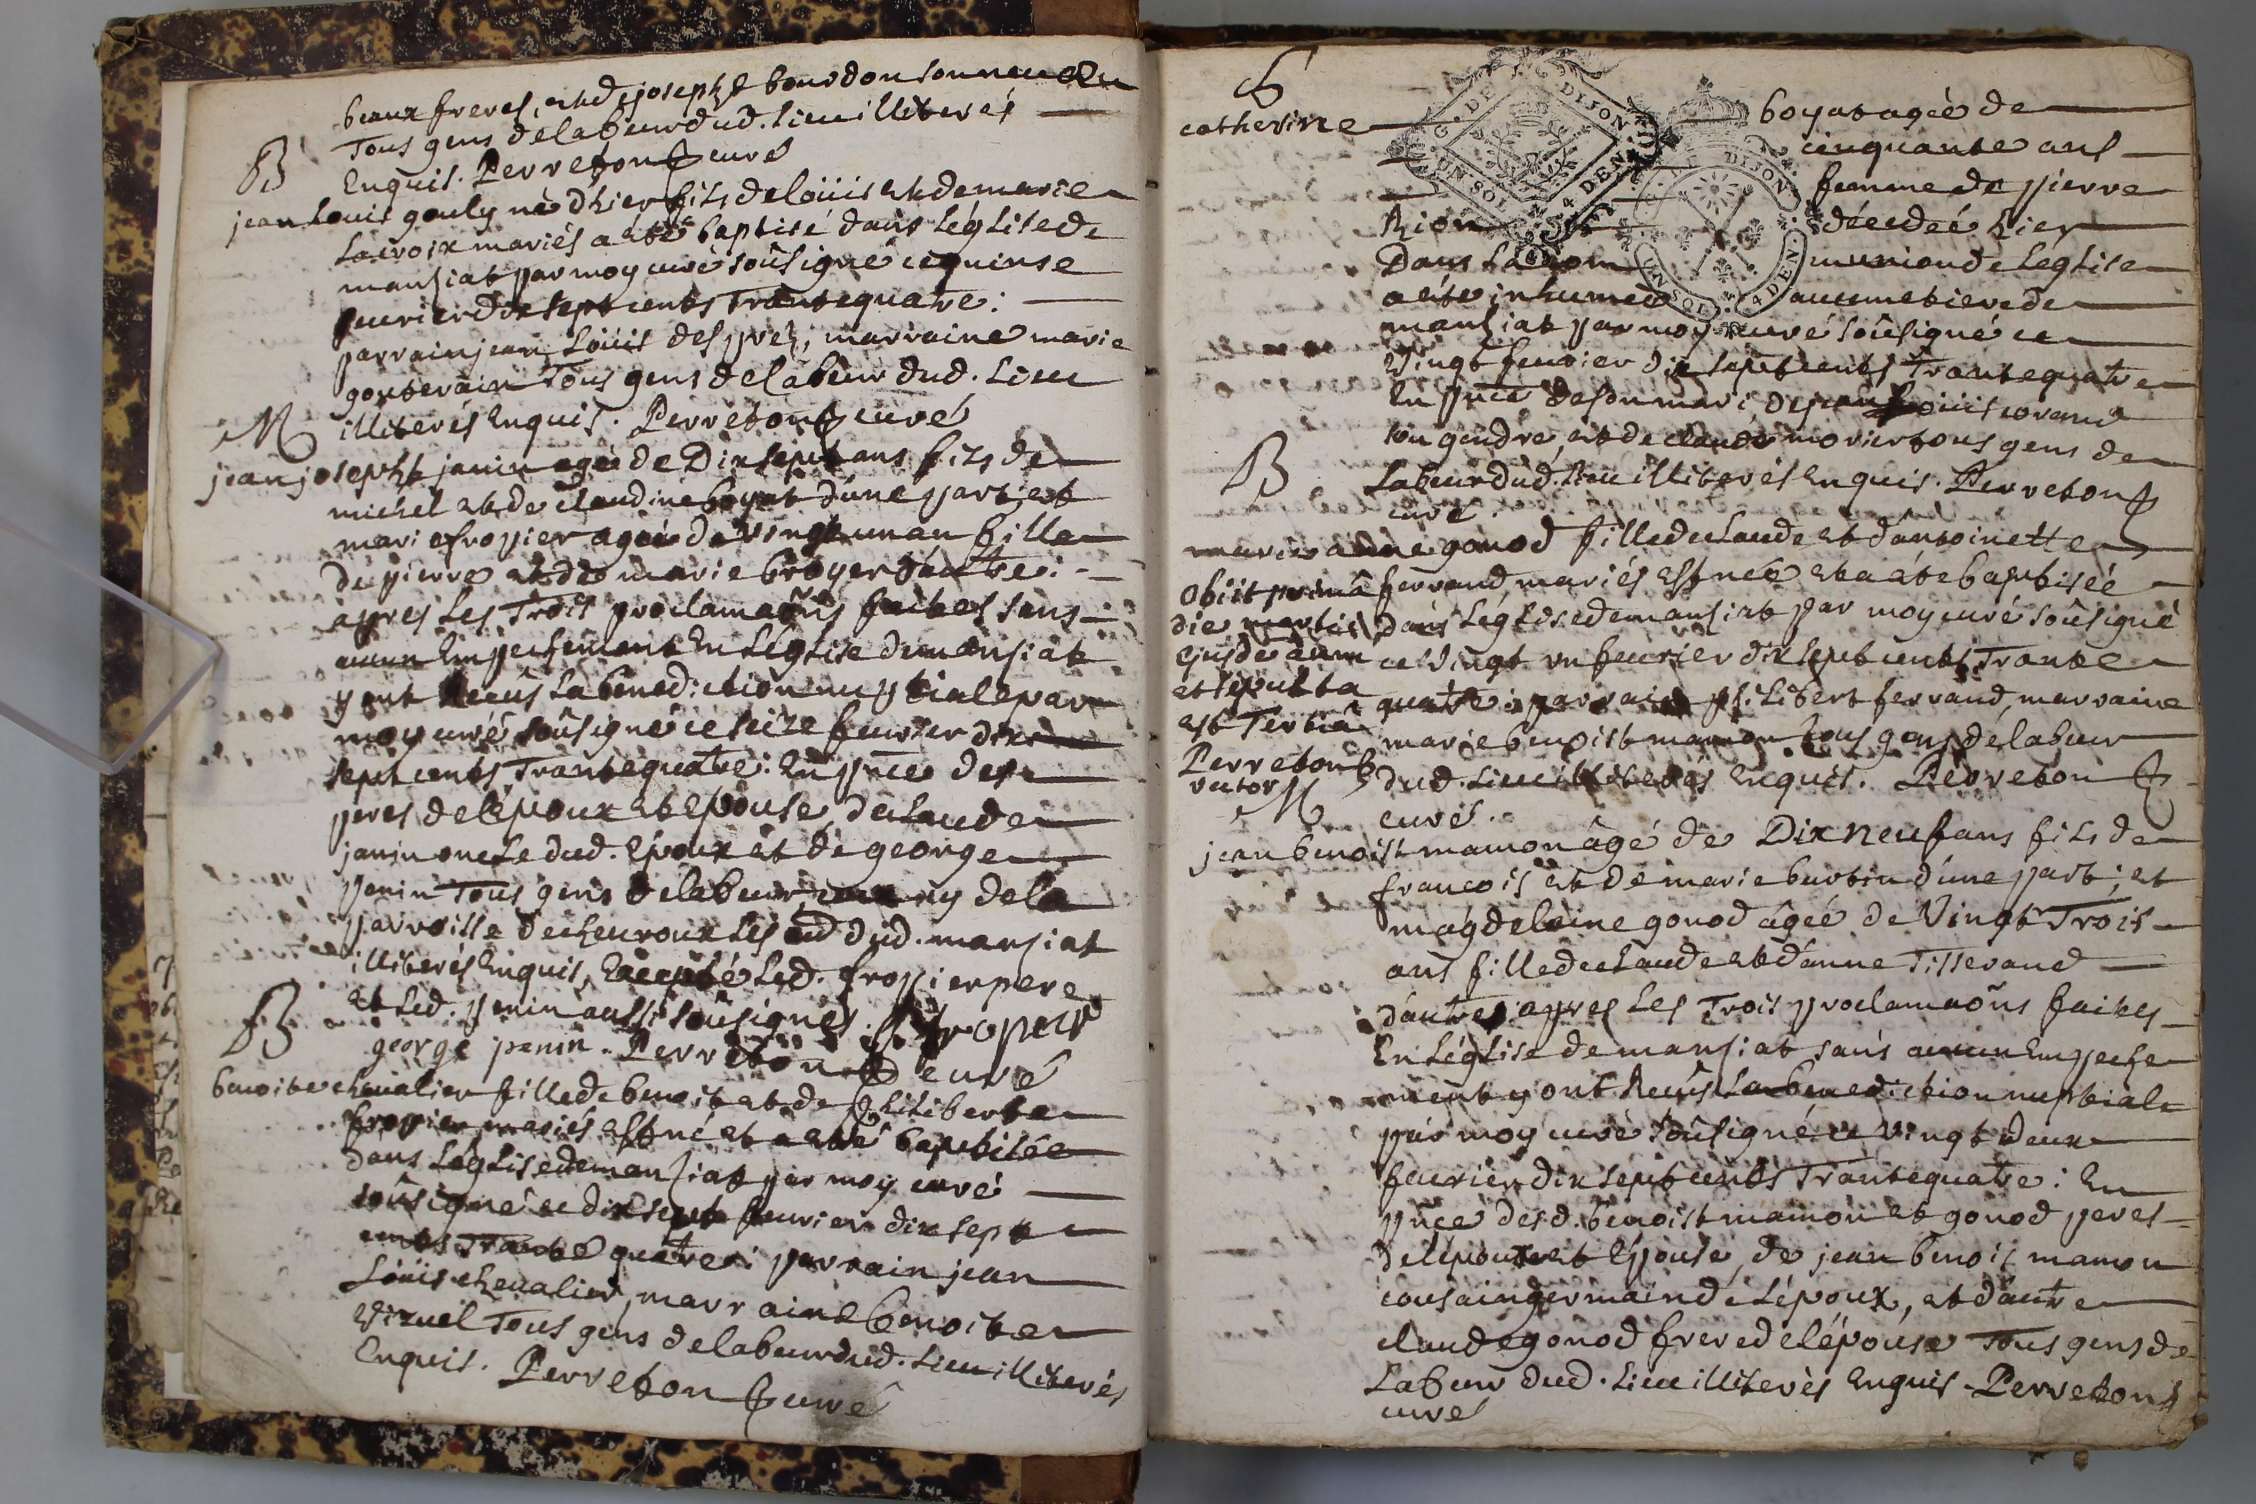 beaux freres, et de joseph bourdon son neveu
Tous gens de labeur dud. Lieu illiterés
Enquis. Perreton curé
B
jean Louis gouly né d'hier fils de loüis et de marie
Lacroix mariés a eté baptisé dans Léglise de
mansiat par moy curé soûsigné ce quinse
feuvrier dix sept cents Trante quatre :
parrain jean Loüis des préz, marraine marie
gouterain Tous gens de labeur dud. Lieu
illiterés Enquis. Perreton curé
M
jean joseph janin agé de Dix sept ans fils de
michel et de claudine boyat d'une part, et
marie fropier agée de vingt un an fille
de pierre et de marie broyer d'autre :
apres Les Trois proclamaõns faites sans
aucun Empechement En Léglise de mansiat
y ont Receûs La bened:iction nuptiale par
moy curé soûsigné ce seize feuvrier dix
sept cents Trante quatre : En pñce des
peres de l'époux et Epouse, de claude
janin oncle dud. Epoux et de george
penin Tous gens de labeur, ceux cy de la
parroisse de cheuroux Les aû dud. mansiat
illiterés Enquis, Excepté Led. fropier pere
et Led. penin aussi soûsignés. fropier
george penin. Perreton curé
B
benoite chevalier fille de benoit et de philiberte
fropier mariés est né et a eté baptisée
dans Léglise de mansiat par moy curé
soûsigné ce dix sept feuvrier dix sept
cents Trante quatre : parrain jean
Loüis chevalier, marraine benoite
Vizuel Tous gens de labeur dud. Lieu illiterés
Enquis. Perreton curé
S
catherine boyat agée de
cinquante ans
femme de pierre
hion décedée hier
Dans La communion de Léglise
a eté inhumée au cimetiere de
mansiat par moy curé soûsigné ce
Vingt feuvier dix sept cents Trante quatre
En pñce de son mari, de jean Loüis corand
son gendre, et de claude morier tous gens de
Labeur dud. Lieu illiterés Enquis. Perreton
curé.
G. DE DIJON
UN SOL 4 DEN.
G. DE DIJON
UN SOL 4 DEN.
B
marie anne gonod fille de claude et d'antoinette
ferrand mariés est neé et a eté baptisée
dans Léglise de mansiat par moy curé soûsigné
ce Vingt un feuvrier dix sept cents Trante
quatre : parrain philibert ferrand, marraine
marie benoist mamon tous gens de labeur
dud. Lieu illiterés Enquis. Perreton
curé.
obiit primâ
die martis
ejusdẽ anni
et sepulta
est Tertiâ
Perreton
rector
M
jean benoist mamon âgé de Dix neuf ans fils de
francois et de marie burtin d'une part ; et
magdelaine gonod âgée de Vingt Trois
ans fille de claude et d'anne Tisserand
d'autre : apres Les Trois proclamaõns faites
En Léglise de mansiat sans aucun Empeche
ment y ont Receûs La bened:iction nuptiale
par moy curé soûsigné ce Vingt deux
feuvrier dix sept cents Trante quatre : En
pñce desd. benoist mamon et gonod peres
de l'époux et Epouse, de jean benoit mamon
cousain germain de Lépoux, et d'autre
claude gonod frere de lépouse Tous gens de
Labeur dud. Lieu illiterés Enquis. Perreton
curé